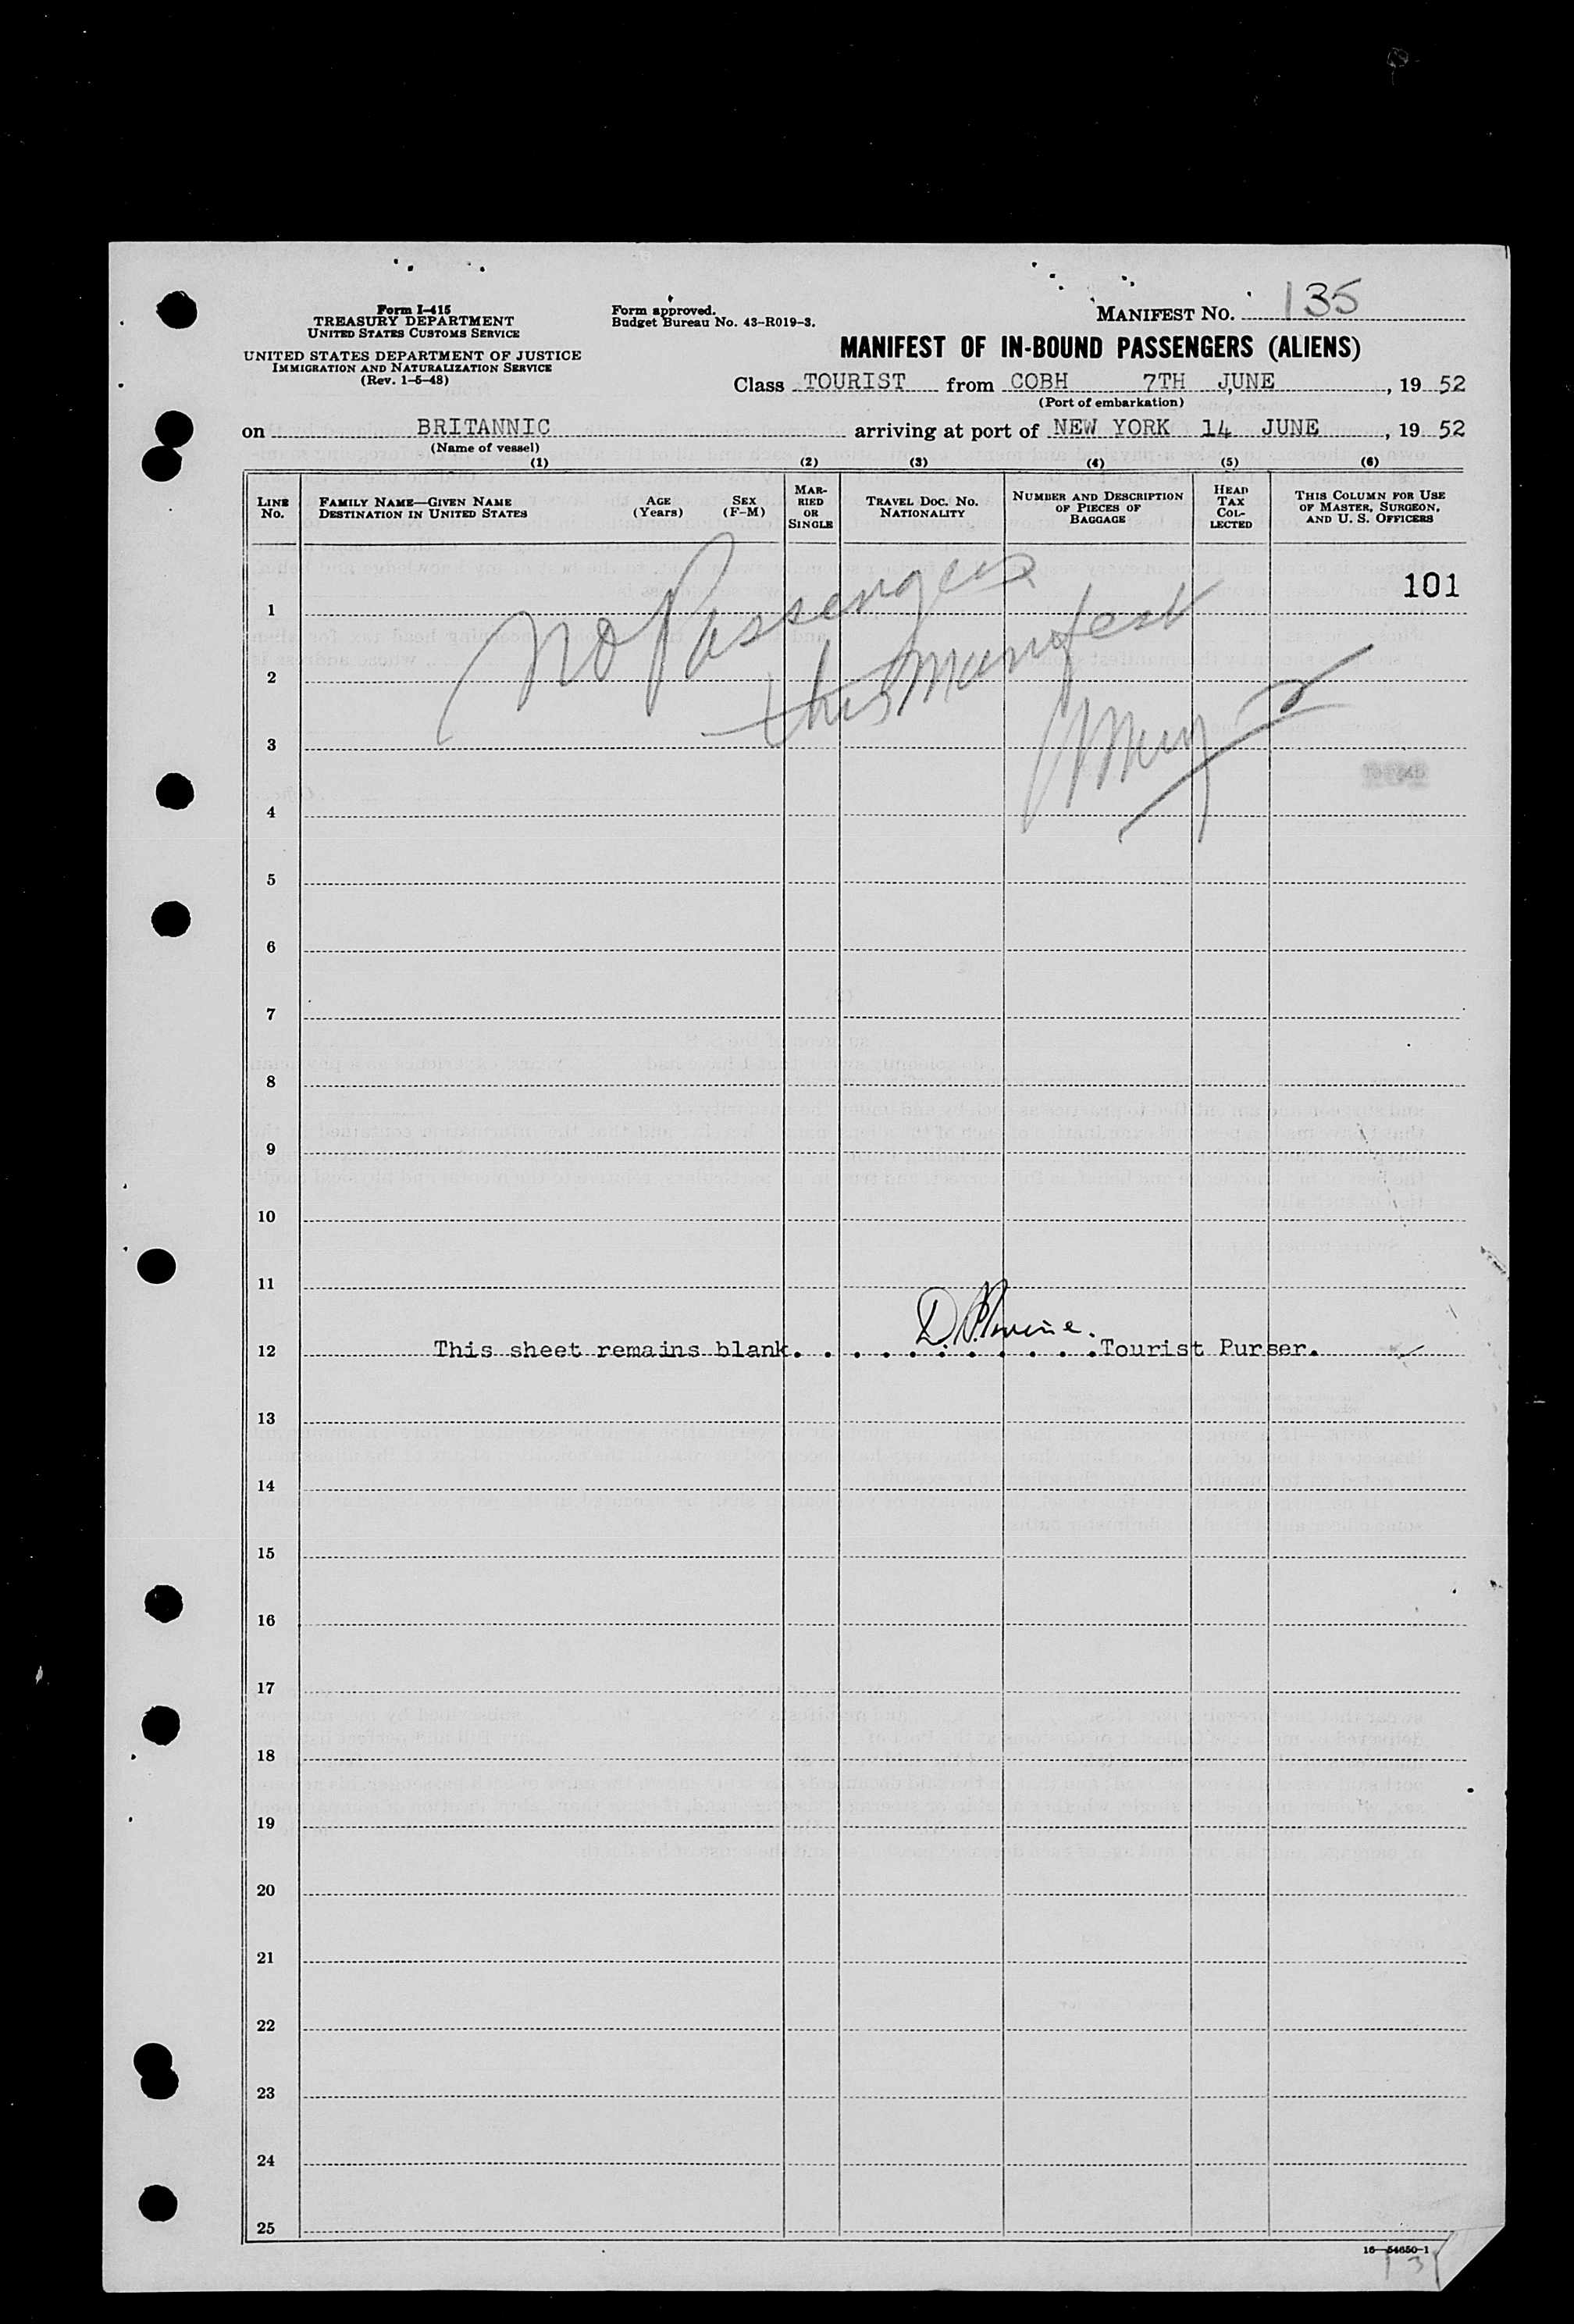 Form I-415
TREASURY DEPARTMENT
UNITED STATES CUSTOMS SERVICE
UNITED STATES DEPARTMENT OF JUSTICE
IMMIGRATION AND NATURALIZATION SERVICE
(Rev. 1-5-48)
Form approved.
Budget Bureau No. 43-R019-3.
MANIFEST NO. 135
MANIFEST OF IN-BOUND PASSENGERS (ALIENS)
Class TOURIST from COBH 7TH JUNE, 19 52
(Port of embarkation)
on BRITANNIC arriving at port of NEW YORK 14 JUNE, 19 52
(Name of vessel)
(1) (2) (3) (4) (5) (6)
LINE No. FAMILY NAME—GIVEN NAME DESTINATION IN UNITED STATES AGE (Years) SEX (F-M) MARRIED OR SINGLE TRAVEL DOC. NO. NATIONALITY NUMBER AND DESCRIPTION OF PIECES OF BAGGAGE HEAD TAX COLLECTED THIS COLUMN FOR USE OF MASTER, SURGEON, AND U. S. OFFICERS
101
No Passengers
this manifest
1
2
3
4
5
6
7
8
9
10
11
12 This sheet remains blank. . . . . . . . . . . .Tourist Purser.
13
14
15
16
17
18
19
20
21
22
23
24
25
16—54650-1